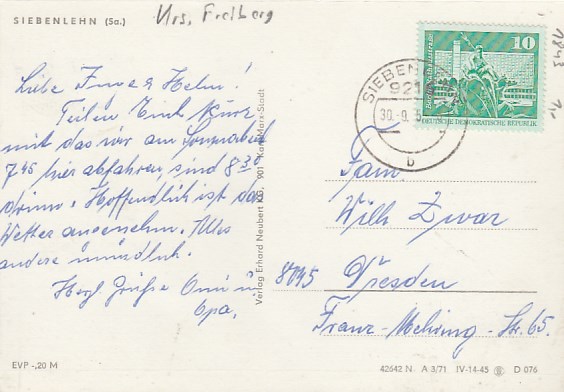 SIEBENLEHN (Sa.)
Krs. Freiberg
Liebe Irma & Helm!
Teilen Euch kurz
mit das wir am Sonnabend
7 45 hier abfahren, sind 8 30
drinn. Hoffendlich ist das
Wetter angenehm. Alles
andere mündlich.
Herzl Grüße Omi u
Opa.
SIEBEN
921
30.-9.
b
10
DEUTSCHE DEMOKRATISCHE REPUBLIK
1843
1,-
Fam
Willi Zwar
8045 Dresden
Franz-Mehring-Str. 65.
Verlag Erhard Neubert KG, 901 Karl-Marx-Stadt
EVP -,20 M
42642 N A 3/71 IV-14-45 D 076